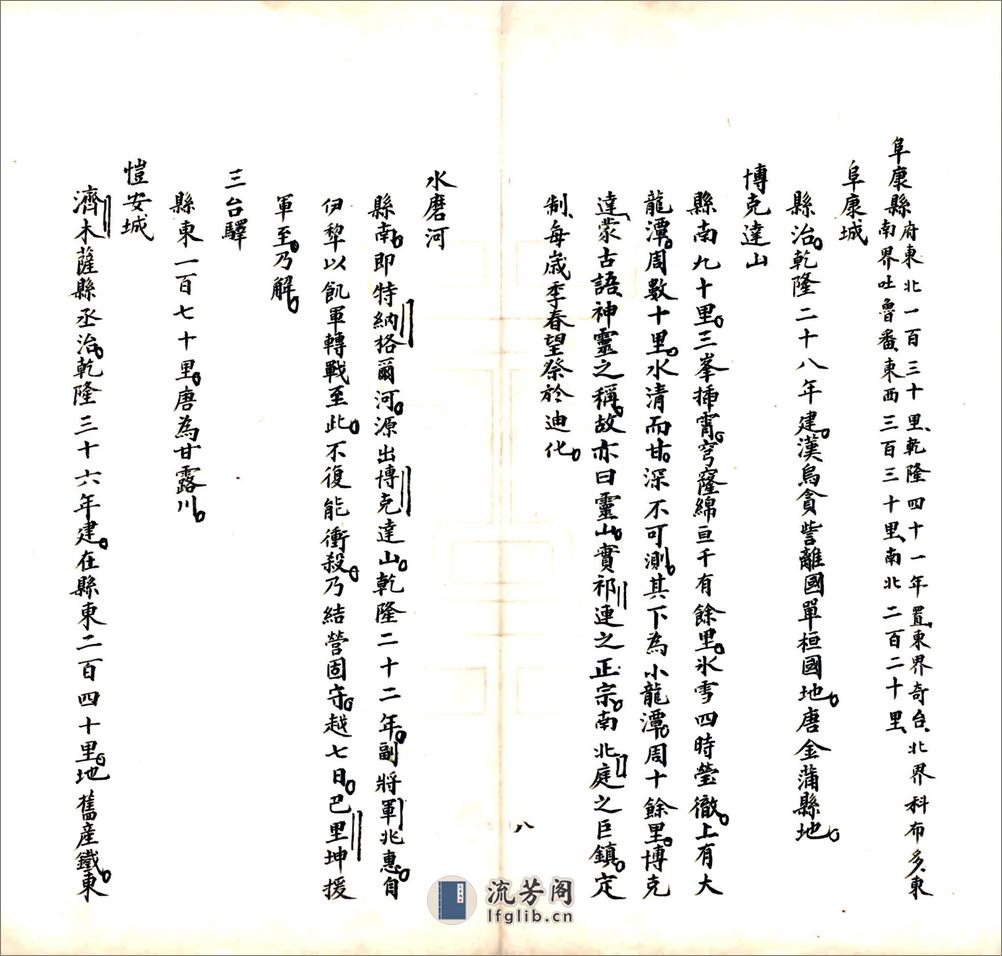 阜康縣府東北一百三十里、乾隆四十一年置、東界奇台、北界科布多、東
南界吐魯番、東西三百三十里、南北二百二十里、
阜康城
縣治。乾隆二十八年建。漢烏貪訾離國單桓國地。唐金蒲縣地。
博克達山
縣南九十里。三峯揷霄。穹窿綿亘千有餘里。氷雪四時瑩徹。上有大
龍潭。周數十里。水清而甘。深不可測。其下為小龍潭。周十餘里。博克
達、蒙古語神靈之稱。故亦曰靈山。實祁連之正宗。南北庭之巨鎮。定
制、每歲季春望祭於迪化。
八
水磨河
縣南。即特納格爾河。源出博克達山。乾隆二十二年。副將軍兆惠。自
伊犂以飢軍轉戰至此。不復能衝殺。乃結營固守。越七日。巴里坤援
軍至。乃解。
三台驛
縣東一百七十里。唐為甘露川。
愷安城
濟木薩縣丞治。乾隆三十六年建。在縣東二百四十里。地舊產鐵。東
流芳阁
lfglib.cn